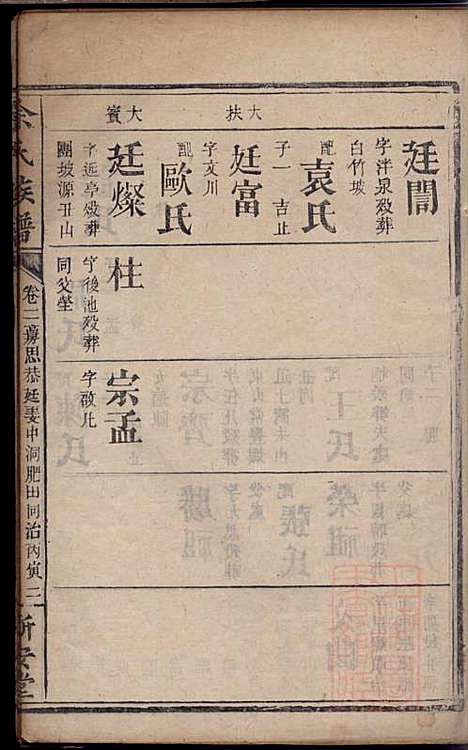 廷誾
字泮泉歿葬
白竹坡
配袁氏
子一 吉止
大扶
廷富
字文川
配歐氏
大賓
廷燦
字近亭歿葬
團坡源丑山
柱
字後池歿葬
同父塋
宗孟
字啟
余氏族譜
卷二 思恭廷 中洞肥田同治丙寅 三
新安堂